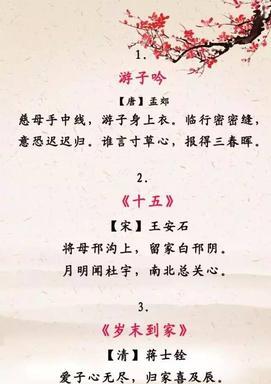 1.
游子吟
【唐】孟郊
慈母手中线，游子身上衣。临行密密缝，
意恐迟迟归。谁言寸草心，报得三春晖。
2.
《十五》
【宋】王安石
将母邗沟上，留家白邗阴。
月明闻杜宇，南北总关心。
3.
《岁末到家》
【清】蒋士铨
爱子心无尽，归家喜及辰。